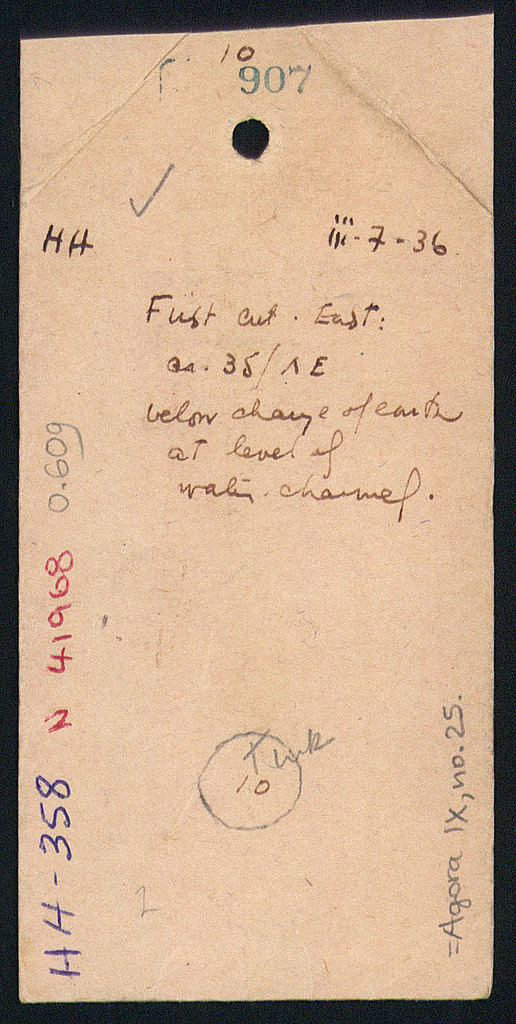 10
907
HH
iii-7-36
First cut. East:
ca. 35/ΛE
below change of earth
at level of
water channel.
0.609
N 41968
HH-358
Turk
10
2
=Agora IX, no. 25.